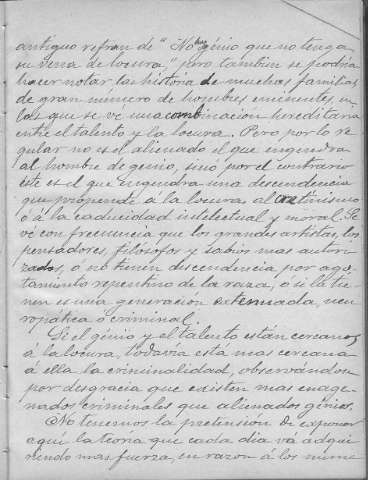 antiguo refran de "No hay génio que no tenga
su vena de locura", pero tambien se podria
hacer notar la historia de muchas familias
de gran número de hombres eminentes, en
las que se ve una combinación hereditaria
entre el talento y la locura. Pero por lo re
gular no es el alienado el que engendra
al hombre de genio, sinó por el contrario
éste es el que engendra una descendencia
que propende á la locura al cretinismo
ó á la caducidad intelectual y moral. Se
vé con frecuencia que los grandes artistas, los
pensadores, filósofos y sabios mas autori
zados, o no tienen descendencia, por ago
tamiento repentino de la raza, o si la tie
nen es una generación extenuada, neu
ropática ó criminal.
Si el génio y el talento están cercanos
á la locura, todavía esta mas cercana
á ella la criminalidad, observándose
por desgracia que existen mas enage
nados criminales que alienados génios.
No tenemos la pretension de exponer
aquí la teoría que cada dia vá adqui
riendo mas fuerza, en razón á los nume